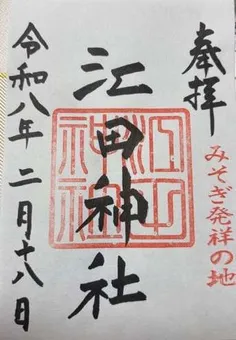 奉拝
みそぎ発祥の地
江田神社
令和八年二月十八日